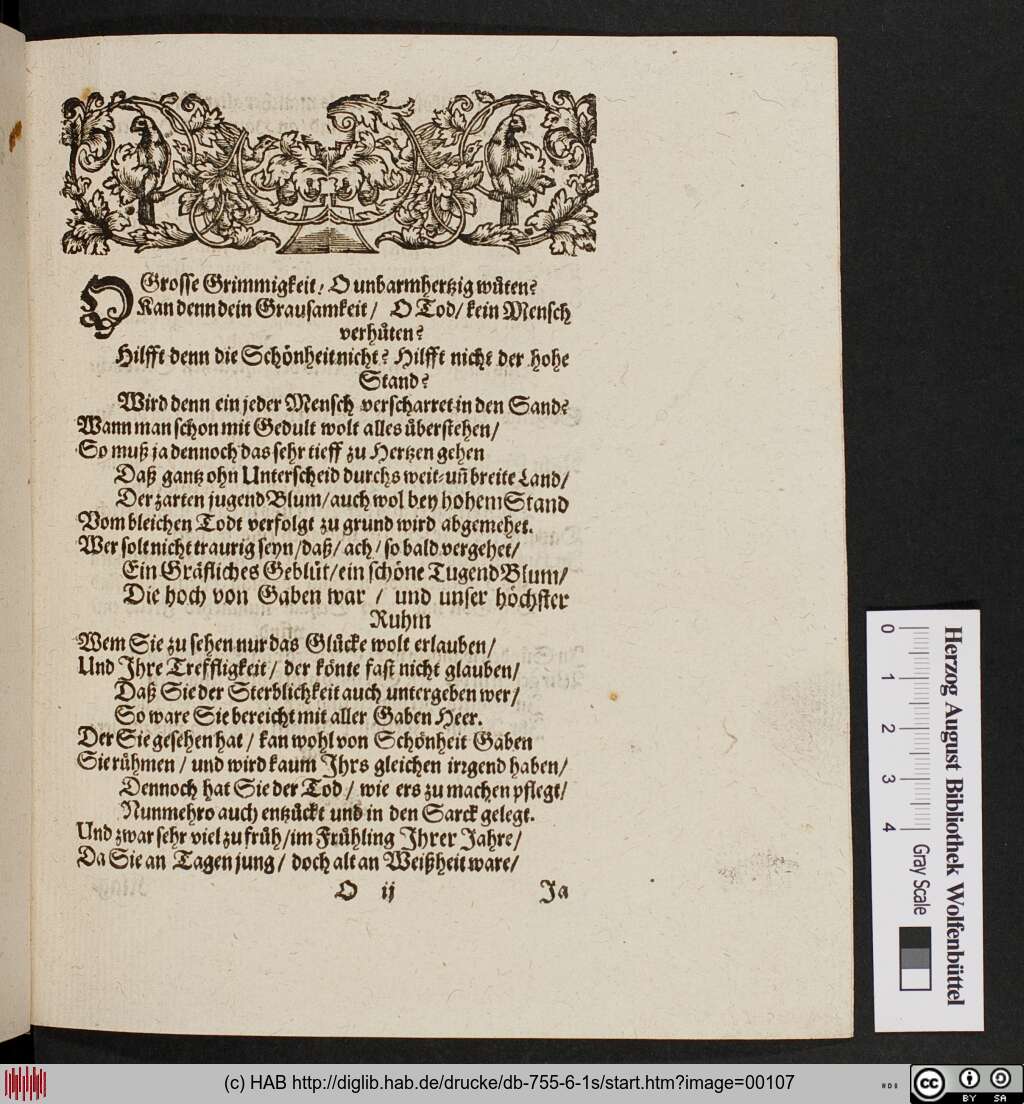 O Grosse Grimmigkeit/ O unbarmhertzig wüten?
Kan denn dein Grausamkeit/ O Tod/ kein Mensch
verhüten?
Hilfft denn die Schönheit nicht? Hilfft nicht der hohe
Stand?
Wird denn ein jeder Mensch verscharret in den Sand?
Wann man schon mit Gedult wolt alles überstehen/
So muß ja dennoch das sehr tieff zu Hertzen gehen
Daß gantz ohn Unterscheid durchs weit-uñ breite Land/
Der zarten jugend Blum/ auch wol bey hohem Stand
Vom bleichen Todt verfolgt zu grund wird abgemehet.
Wer solt nicht traurig seyn/ daß/ ach/ so bald vergehet/
Ein Gräfliches Geblüt/ ein schöne Tugend Blum/
Die hoch von Gaben war / und unser höchster
Ruhm
Wem Sie zu sehen nur das Glücke wolt erlauben/
Und Ihre Treffligkeit/ der könte fast nicht glauben/
Daß Sie der Sterblichkeit auch untergeben wer/
So ware Sie bereicht mit aller Gaben Heer.
Der Sie gesehen hat/ kan wohl von Schönheit Gaben
Sie rühmen/ und wird kaum Ihrs gleichen irzgend haben/
Dennoch hat Sie der Tod/ wie ers zu machen pflegt/
Nunmehro auch entzückt und in den Sarck gelegt.
Und zwar sehr viel zu früh/ im Frühling Ihrer Jahre/
Da Sie an Tagen jung/ doch alt an Weißheit ware/
O ij Ja
0 1 2 3 4 Gray Scale
Herzog August Bibliothek Wolfenbüttel
(c) HAB http://diglib.hab.de/drucke/db-755-6-1s/start.htm?image=00107
cc BY SA